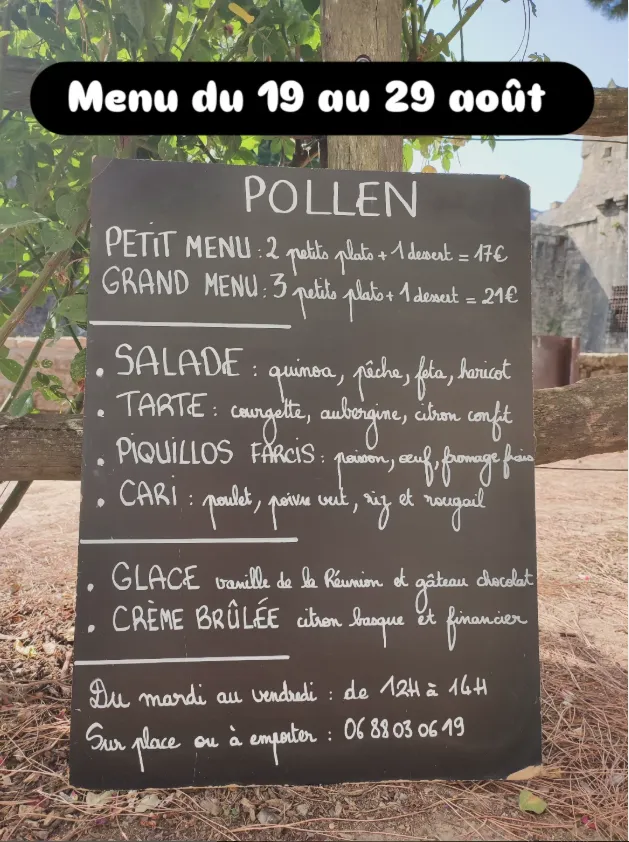 Menu du 19 au 29 août
POLLEN
PETIT MENU : 2 petits plats + 1 dessert = 17€
GRAND MENU : 3 petits plats + 1 dessert = 21€
• SALADE : quinoa, pêche, feta, haricot
• TARTE : courgette, aubergine, citron confit
• PIQUILLOS FARCIS : poisson, œuf, fromage frais
• CARI : poulet, poivre vert, riz et rougail
• GLACE vanille de la Réunion et gâteau chocolat
• CRÈME BRÛLÉE citron basque et financier
Du mardi au vendredi : de 12H à 14H
Sur place ou à emporter : 06 88 03 06 19